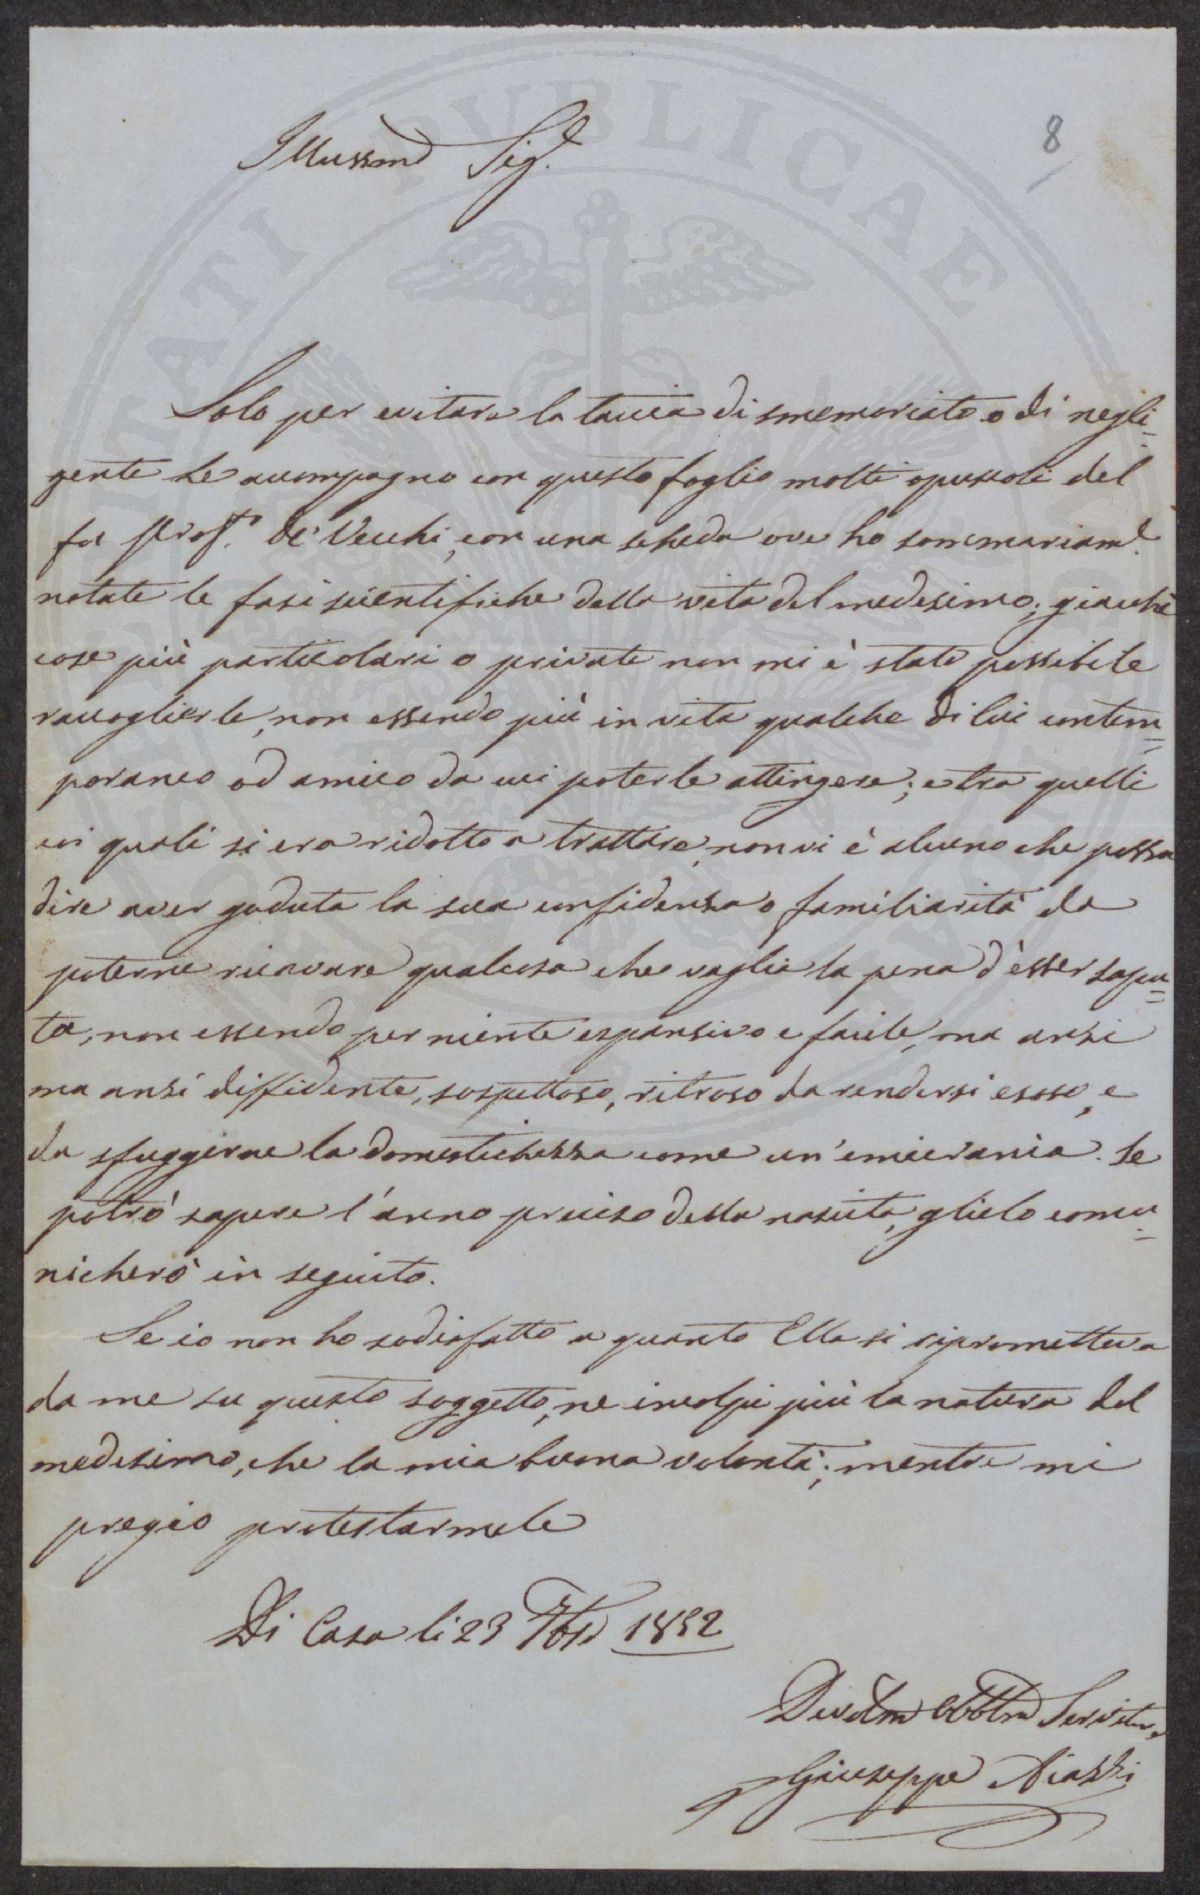 8
Illussmo Sige.
Solo per evitare la taccia di smemoriato o di negli-
gente Le accompagno con questo foglio molti opuscoli del
fu Prof.e De' Vecchi, con una scheda ove ho sommariame.
notate le fasi scientifiche della vita del medesimo; giacchè
cose più particolari o private non mi è stato possibile
raccoglierle, non essendo più in vita qualche di lui contem-
poraneo od amico da cui poterle attingere; e tra quelli
coi quali si era ridotto a trattare, non vi è alcuno che possa
dire aver goduta la sua confidenza o familiarità da
poterne ricavare qualcosa che vaglia la pena d'esser sapu-
ta, non essendo per niente espansivo e facile, ma anzi
ma anzi diffidente, sospettoso, ritroso da rendersi esoso, e
da sfuggirne la domestichezza come un'emicrania. Se
potrò sapere l'anno preciso della nascita, glielo comu-
nicherò in seguito.
Se io non ho sodisfatto a quanto Ella si riprometteva
da me su questo soggetto, ne incolpi più la natura del
medesimo, che la mia buona volontà; mentre mi
pregio protestarmele
Di Casa li 23 7bre 1852
Devotmo Obblmo Servitore
Giuseppe Aiazzi
PUBLICAE